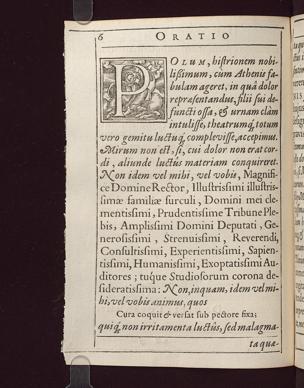 6 ORATIO
POLUM, histrionem nobi-
lissimum, cum Athenis fa-
bulam ageret, in quâ dolor
repræsentandus, filii sui de-
functi ossa, & urnam clàm
intulisse, theatrumq́; totum
vero gemitu luctuq́; complevisse, accepimus.
Mirum non est, si, cui dolor non erat cor-
di, aliunde luctûs materiam conquireret.
Non idem vel mihi, vel vobis, Magnifi-
ce Domine Rector, Illustrissimi illustris-
simæ familiæ surculi, Domini mei cle-
mentissimi, Prudentissime Tribune Ple-
bis, Amplissimi Domini Deputati, Ge-
nerosissimi, Strenuissimi, Reverendi,
Consultissimi, Experientissimi, Sapien-
tissimi, Humanissimi, Exoptatissimi Au-
ditores; tuq́ue Studiosorum corona de-
sideratissima: Non, inquam, idem vel mi-
hi, vel vobis animus, quos
Cura coquit & versat sub pectore fixa;
quiq́; non irritamenta luctûs, sed malagma-
ta quæ-